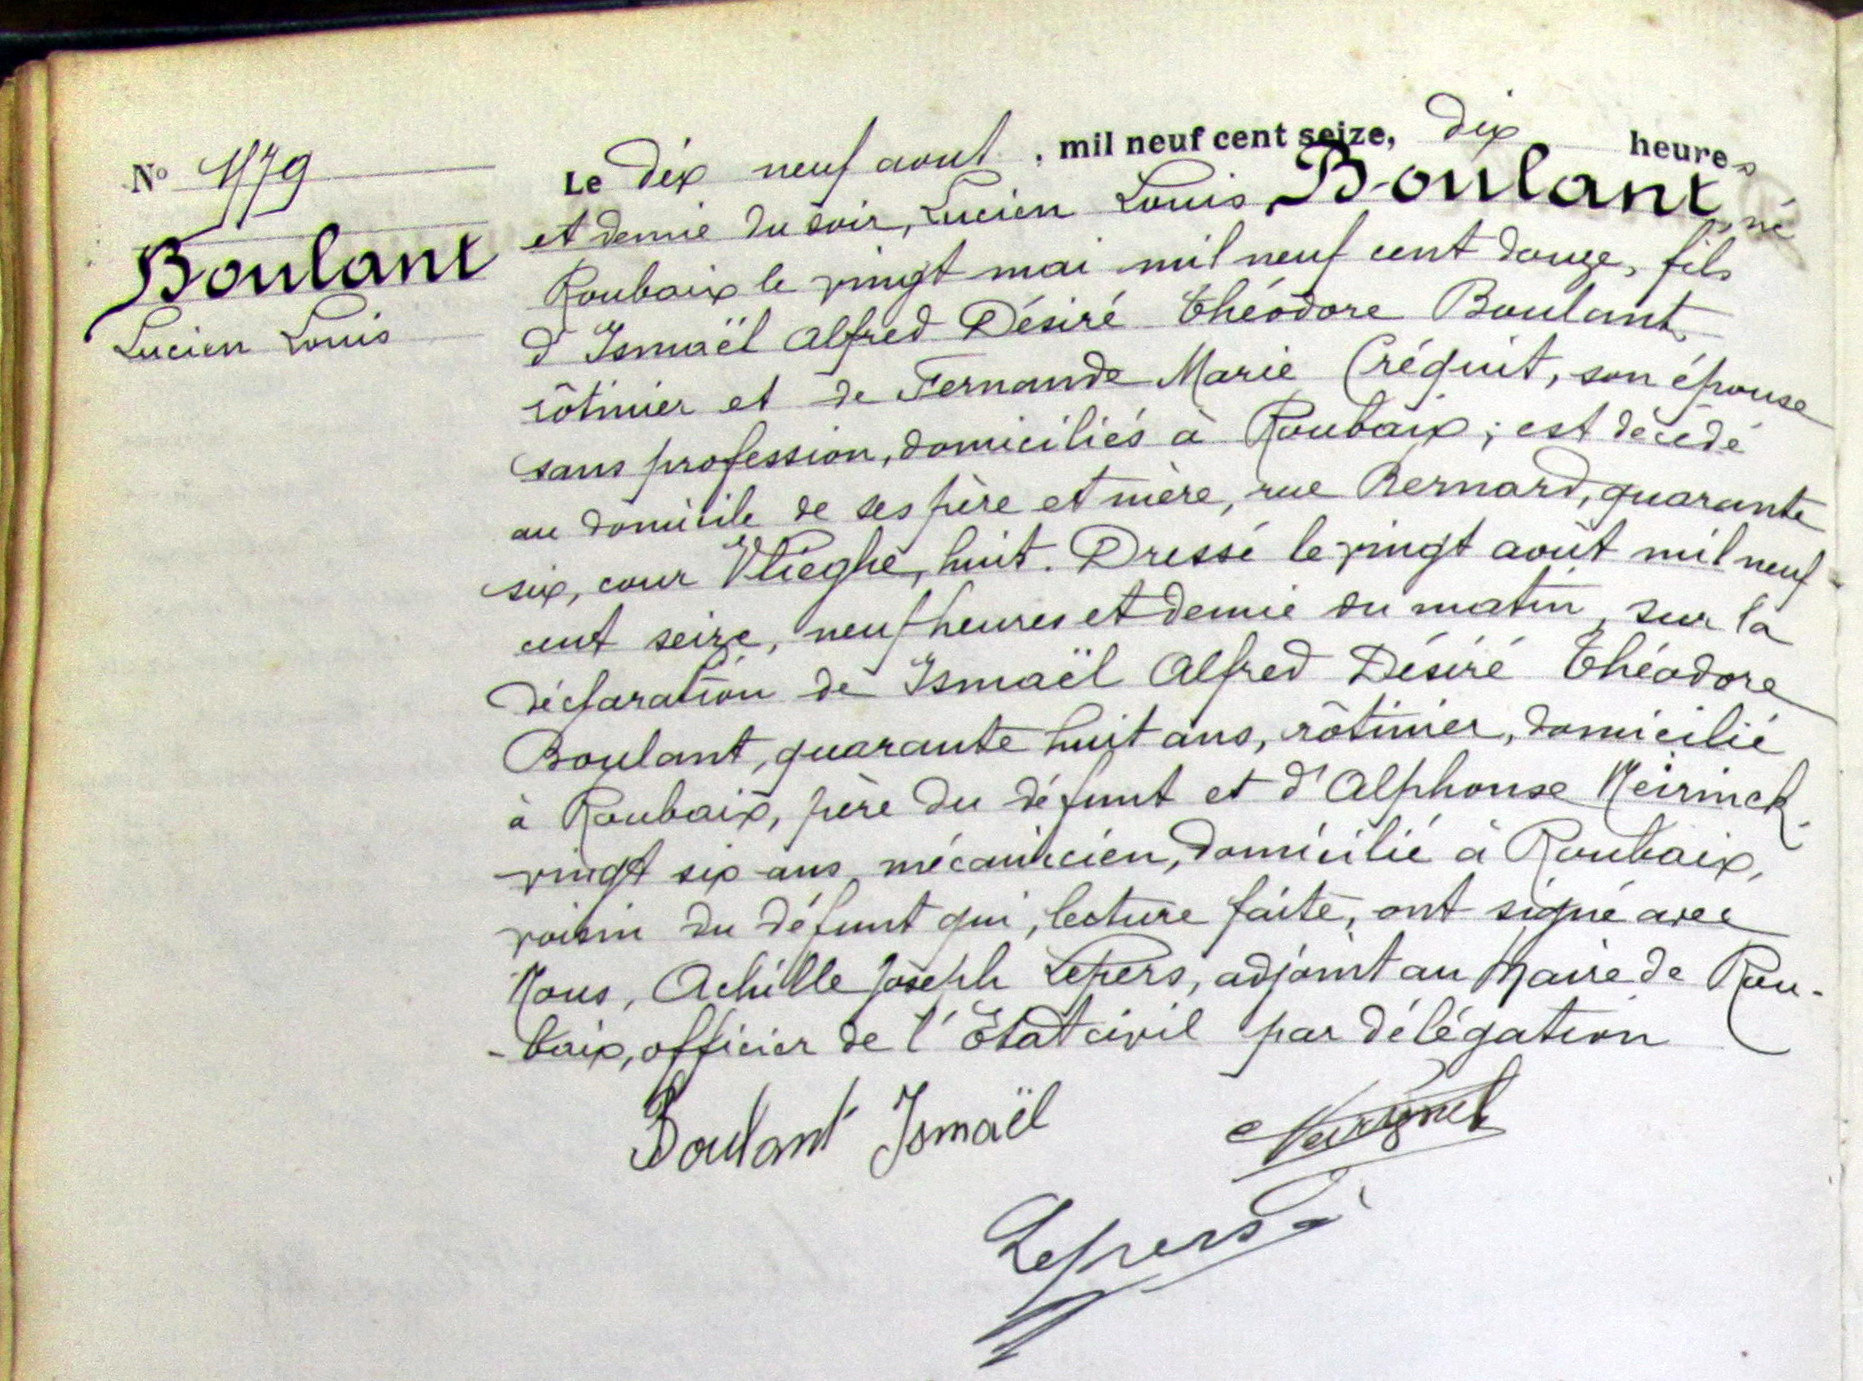 N° 1179
Boulant
Lucien Louis
Le dix neuf aout, mil neuf cent seize, dix heures
et demie du soir, Lucien Louis Boulant, né
Roubaix le vingt mai mil neuf cent douze, fils
d'Ismaël Alfred Désiré Théodore Boulant,
rôtinier et de Fernande Marie Créquit, son épouse
sans profession, domiciliés à Roubaix; est décédé
au domicile de ses père et mère, rue Bernard, quarante
six, cour Vlieghe, huit. Dressé le vingt août mil neuf
cent seize, neuf heures et demie du matin, sur la
déclaration de Ismaël Alfred Désiré Théodore
Boulant, quarante huit ans, rôtinier, domicilié
à Roubaix, père du défunt et d'Alphonse Neirinck
vingt six ans, mécanicien, domicilié à Roubaix,
voisin du défunt qui, lecture faite, ont signé avec
Nous, Achille Joseph Lepers, adjoint au Maire de Rou-
-baix, officier de l'Etat civil par délégation
Boulant Ismaël
Lepers